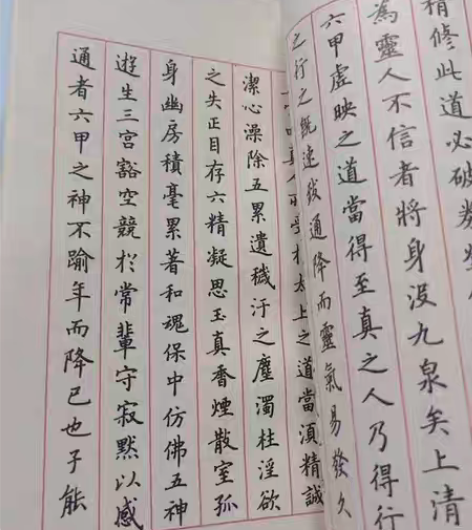 精修此道必破
為靈人不信者將身没九泉矣上清
六甲虛映之道當得至真之人乃得行
之行之既速致通降而靈氣易發久
真人所受於太上之道當湏精誠
潔心澡除五累遺穢汙之塵濁杜淫欲
之失正目存六精凝思玉真香煙散室孤
身幽房積毫累著和魂保中仿佛五神
遊生三宮豁空競於常輩守寂默以感
通者六甲之神不踰年而降已也子能